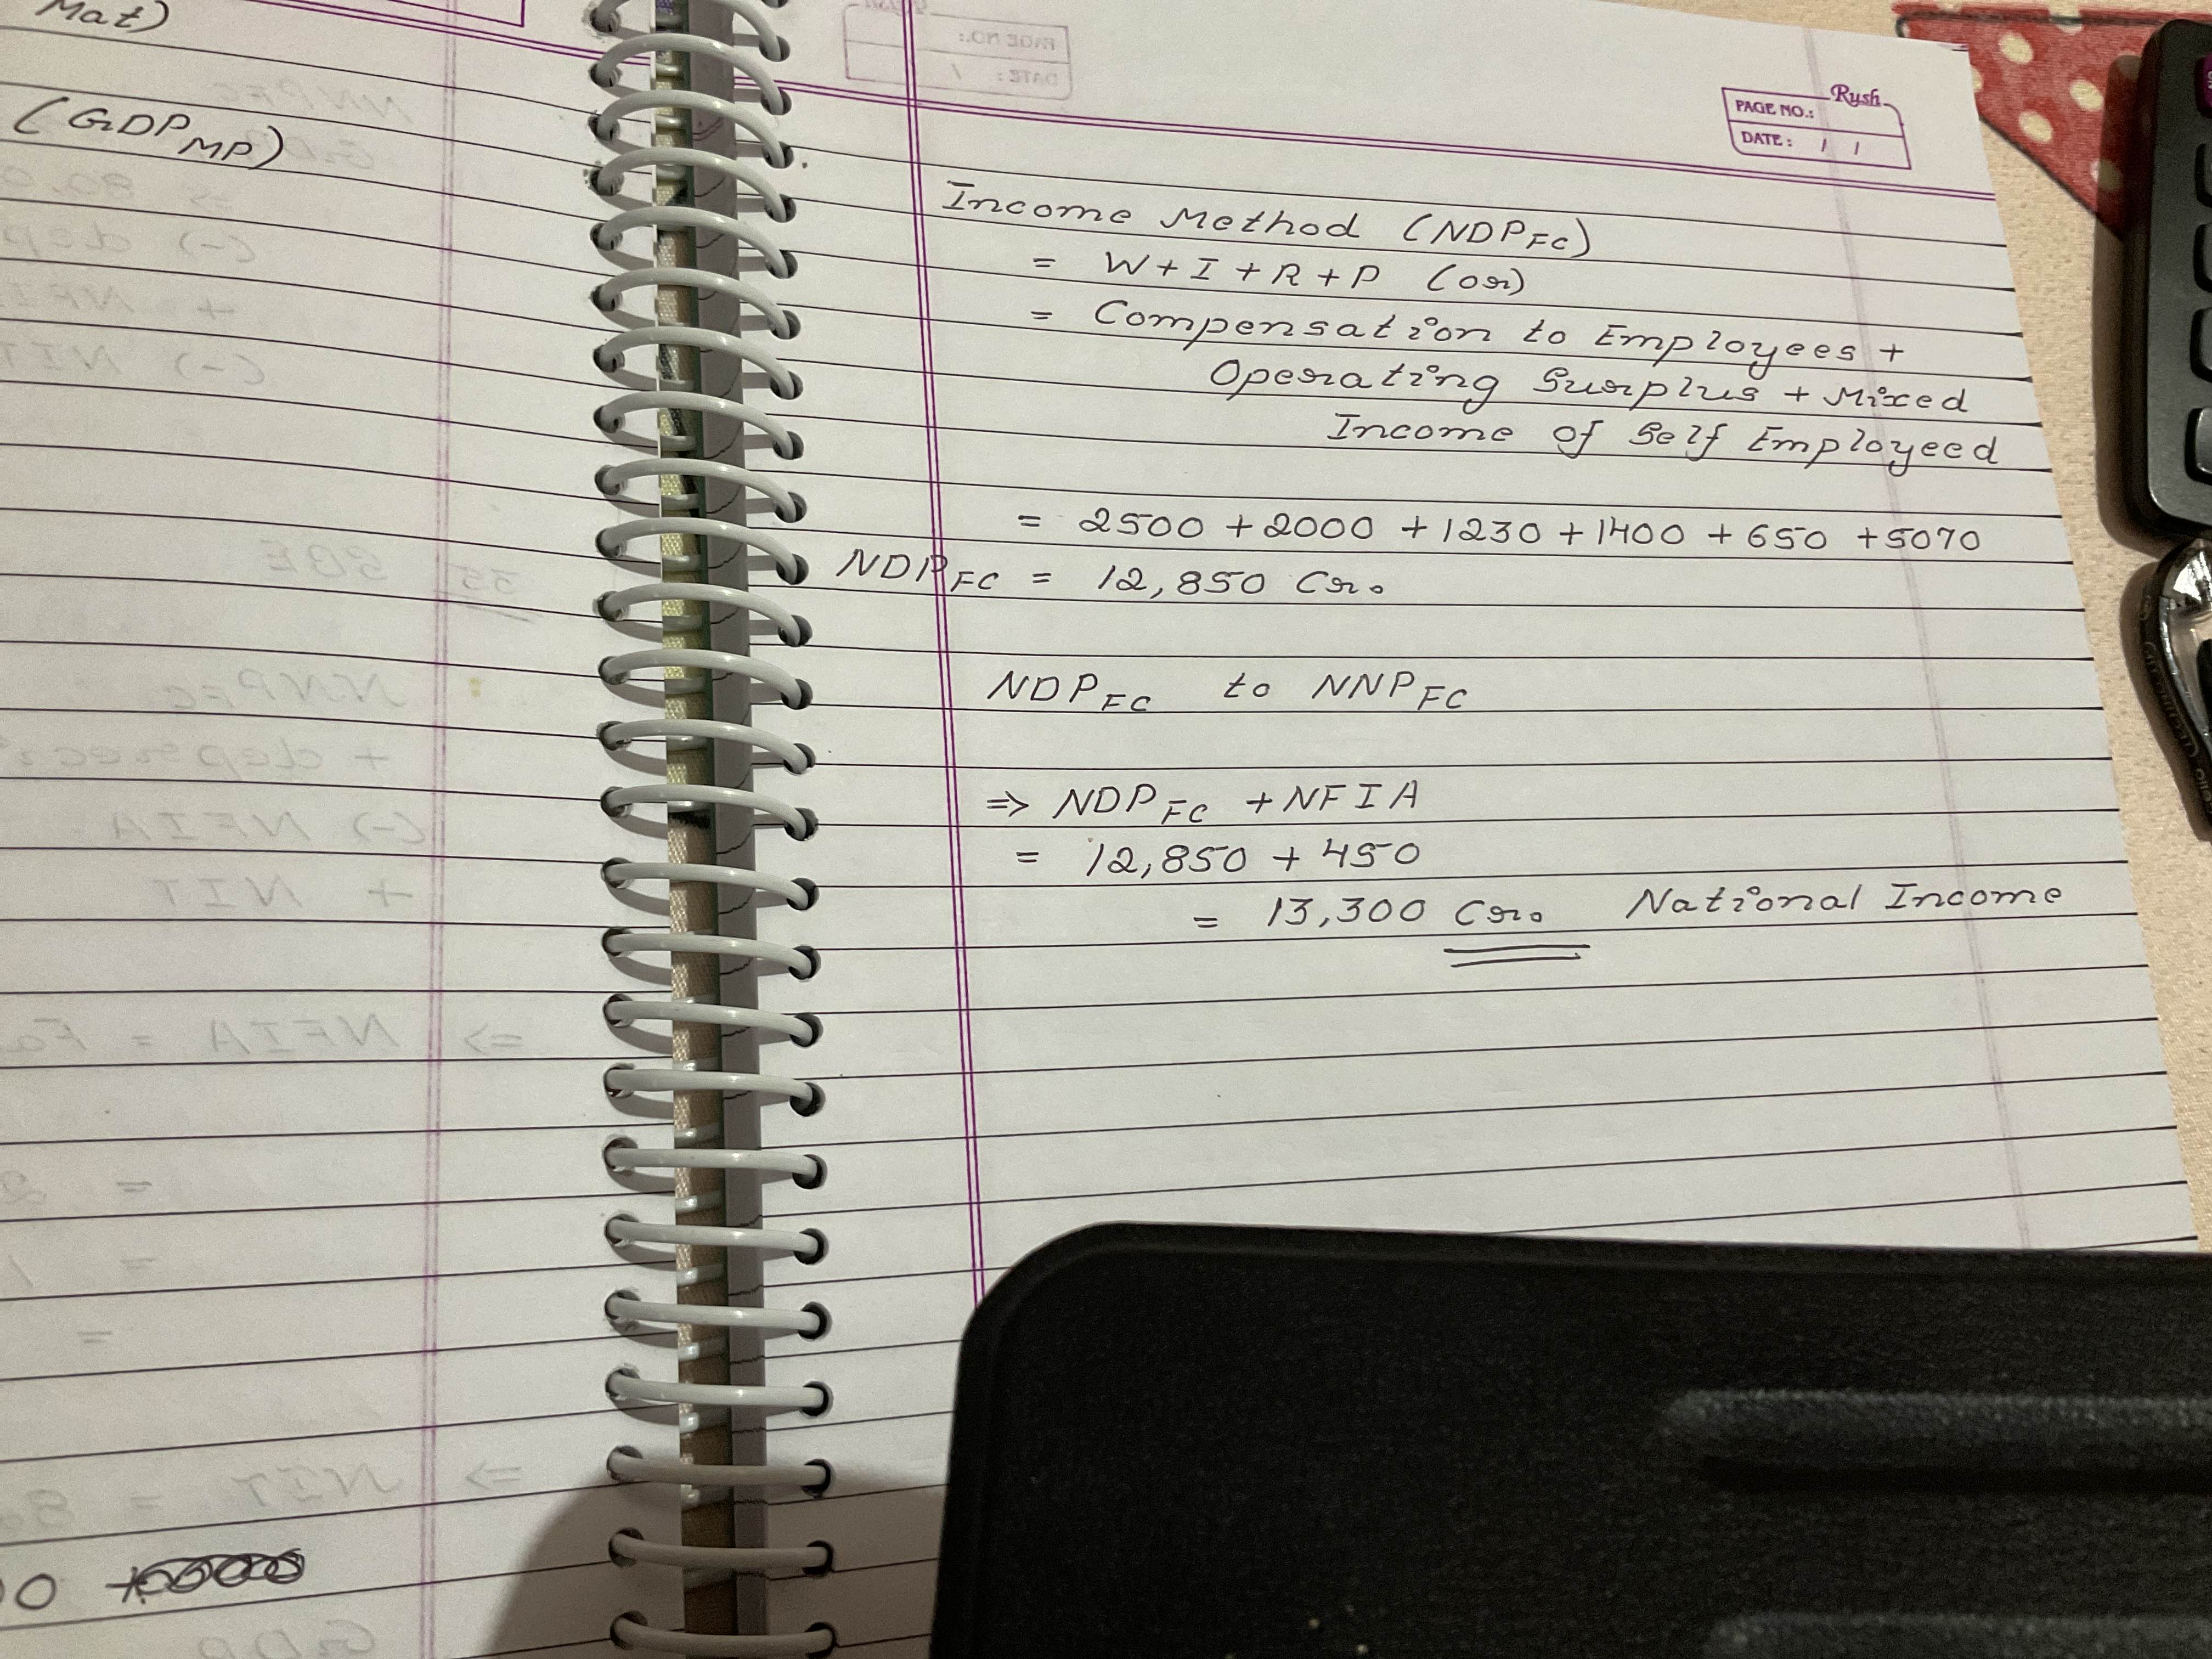 Mat)
(GDP MP)
Rush
PAGE NO.:
DATE: / /
Income Method (NDP FC)
= W + I + R + P (or)
= Compensation to Employees +
Operating Surplus + Mixed
Income of Self Employeed
= 2500 + 2000 + 1230 + 1400 + 650 + 5070
NDP FC = 12,850 Cr.
NDP FC to NNP FC
⇒ NDP FC + NFIA
= 12,850 + 450
= 13,300 Cr. National Income